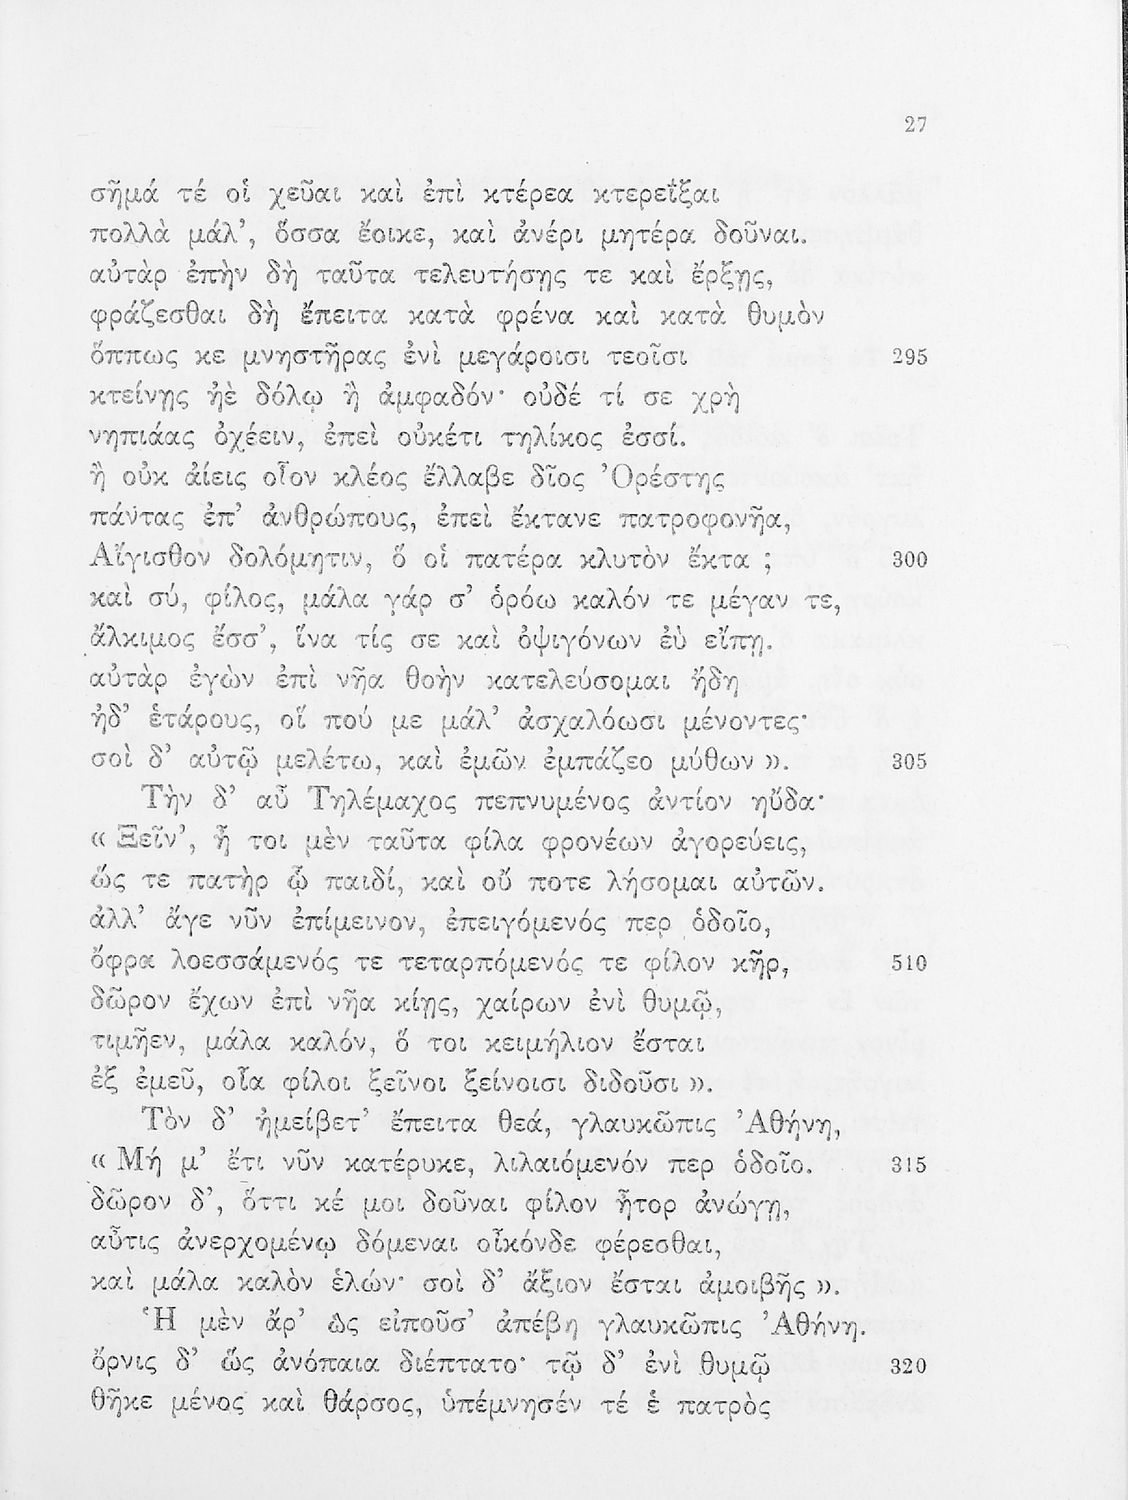 27
σῆμά τέ οἱ χεῦαι καὶ ἐπὶ κτέρεα κτερεΐξαι
πολλὰ μάλ’, ὅσσα ἔοικε, καὶ ἀνέρι μητέρα δοῦναι.
αὐτὰρ ἐπὴν δὴ ταῦτα τελευτήσῃς τε καὶ ἔρξῃς,
φράζεσθαι δὴ ἔπειτα κατὰ φρένα καὶ κατὰ θυμὸν
ὅππως κε μνηστῆρας ἐνὶ μεγάροισι τεοῖσι 295
κτείνῃς ἠὲ δόλῳ ἢ ἀμφαδόν· οὐδέ τί σε χρὴ
νηπιάας ὀχέειν, ἐπεὶ οὐκέτι τηλίκος ἐσσί.
ἢ οὐκ ἀίεις οἷον κλέος ἔλλαβε δῖος ’Ορέστης
πάντας ἐπ’ ἀνθρώπους, ἐπεὶ ἔκτανε πατροφονῆα,
Αἴγισθον δολόμητιν, ὅ οἱ πατέρα κλυτὸν ἔκτα ; 300
καὶ σύ, φίλος, μάλα γάρ σ’ ὁρόω καλόν τε μέγαν τε,
ἄλκιμος ἔσσ’, ἵνα τίς σε καὶ ὀψιγόνων ἐὺ εἴπῃ.
αὐτὰρ ἐγὼν ἐπὶ νῆα θοὴν κατελεύσομαι ἤδη
ἠδ’ ἑτάρους, οἵ πού με μάλ’ ἀσχαλόωσι μένοντες·
σοὶ δ’ αὐτῷ μελέτω, καὶ ἐμῶν ἐμπάζεο μύθων ». 305
Τὴν δ’ αὖ Τηλέμαχος πεπνυμένος ἀντίον ηὔδα·
« Ξεῖν’, ἦ τοι μὲν ταῦτα φίλα φρονέων ἀγορεύεις,
ὥς τε πατὴρ ᾧ παιδί, καὶ οὔ ποτε λήσομαι αὐτῶν.
ἀλλ’ ἄγε νῦν ἐπίμεινον, ἐπειγόμενός περ ὁδοῖο,
ὄφρα λοεσσάμενός τε τεταρπόμενός τε φίλον κῆρ, 510
δῶρον ἔχων ἐπὶ νῆα κίῃς, χαίρων ἐνὶ θυμῷ,
τιμῆεν, μάλα καλόν, ὅ τοι κειμήλιον ἔσται
ἐξ ἐμεῦ, οἷα φίλοι ξεῖνοι ξείνοισι διδοῦσι ».
Τὸν δ’ ἠμείβετ’ ἔπειτα θεά, γλαυκῶπις ’Αθήνη,
« Μή μ’ ἔτι νῦν κατέρυκε, λιλαιόμενόν περ ὁδοῖο. 315
δῶρον δ’, ὅττι κέ μοι δοῦναι φίλον ἦτορ ἀνώγῃ,
αὖτις ἀνερχομένῳ δόμεναι οἶκόνδε φέρεσθαι,
καὶ μάλα καλὸν ἑλών· σοὶ δ’ ἄξιον ἔσται ἀμοιβῆς ».
‘Η μὲν ἄρ’ ὣς εἰποῦσ’ ἀπέβη γλαυκῶπις ’Αθήνη.
ὄρνις δ’ ὣς ἀνόπαια διέπτατο· τῷ δ’ ἐνὶ θυμῷ 320
θῆκε μένος καὶ θάρσος, ὑπέμνησέν τέ ἑ πατρὸς